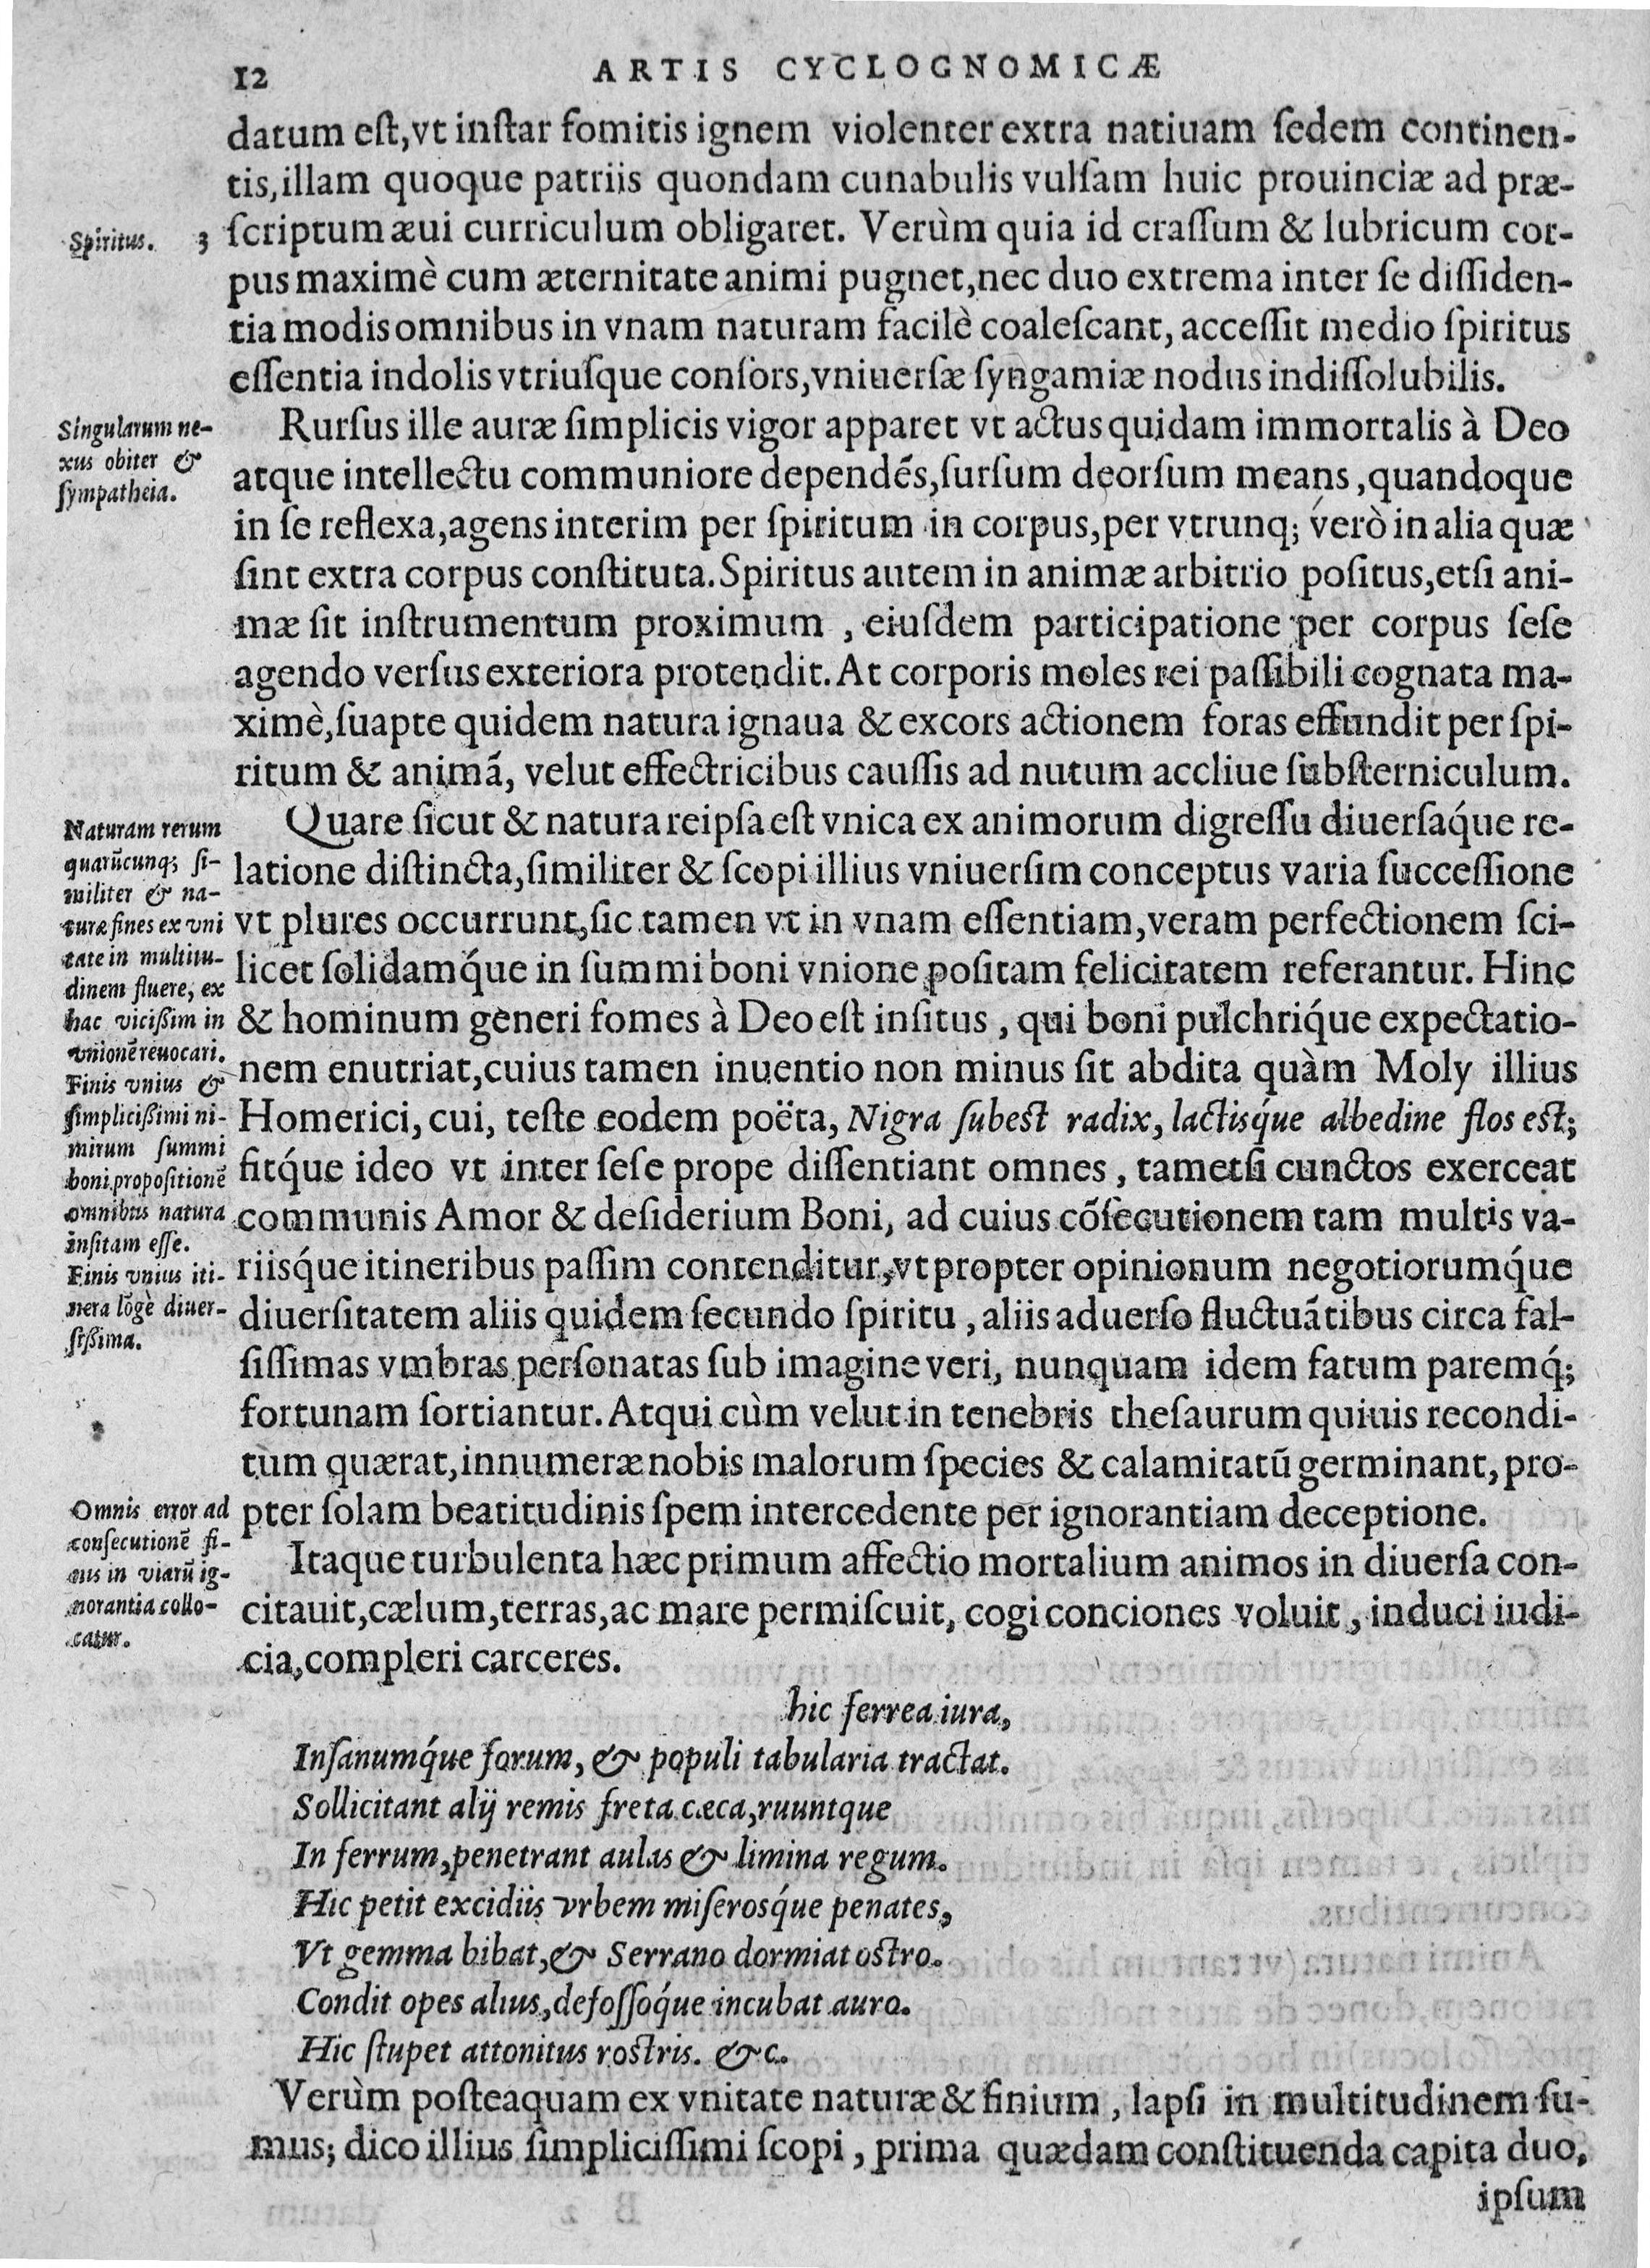 12 ARTIS CYCLOGNOMICÆ
datum est, vt instar fomitis ignem violenter extra natiuam sedem continen-
tis, illam quoque patriis quondam cunabulis vulsam huic prouinciæ ad præ-
Spiritus. 3
scriptum æui curriculum obligaret. Verùm quia id crassum & lubricum cor-
pus maximè cum æternitate animi pugnet, nec duo extrema inter se dissiden-
tia modis omnibus in vnam naturam facilè coalescant, accessit medio spiritus
essentia indolis vtriusque consors, vniuersæ syngamiæ nodus indissolubilis.
Singularum ne-
xus obiter &
sympatheia.
Rursus ille auræ simplicis vigor apparet vt actus quidam immortalis à Deo
atque intellectu communiore dependẽs, sursum deorsum means, quandoque
in se reflexa, agens interim per spiritum in corpus, per vtrunq; verò in alia quæ
sint extra corpus constituta. Spiritus autem in animæ arbitrio positus, etsi ani-
mæ sit instrumentum proximum, eiusdem participatione per corpus sese
agendo versus exteriora protendit. At corporis moles rei passibili cognata ma-
ximè, suapte quidem natura ignaua & excors actionem foras effundit per spi-
ritum & animã, velut effectricibus caussis ad nutum accliue substerniculum.
Naturam rerum
quarũcunq; si-
militer & na-
turæ fines ex vni
tate in multitu-
dinem fluere, ex
hac vicißim in
vnionẽ reuocari.
Finis vnius &
simplicißimi ni-
mirum summi
boni propositionẽ
omnibus natura
insitam esse.
Finis vnius iti-
nera lõgè diuer-
sißima.
Quare sicut & natura reipsa est vnica ex animorum digressu diuersáque re-
latione distincta, similiter & scopi illius vniuersim conceptus varia successione
vt plures occurrunt, sic tamen vt in vnam essentiam, veram perfectionem sci-
licet solidamq́ue in summi boni vnione positam felicitatem referantur. Hinc
& hominum generi fomes à Deo est insitus, qui boni pulchriq́ue expectatio-
nem enutriat, cuius tamen inuentio non minus sit abdita quàm Moly illius
Homerici, cui, teste eodem poëta, Nigra subest radix, lactisq́ue albedine flos est;
fitq́ue ideo vt inter sese prope dissentiant omnes, tametsi cunctos exerceat
communis Amor & desiderium Boni, ad cuius cõsecutionem tam multis va-
riisq́ue itineribus passim contenditur, vt propter opinionum negotiorumq́ue
diuersitatem aliis quidem secundo spiritu, aliis aduerso fluctuãtibus circa fal-
sissimas vmbras personatas sub imagine veri, nunquam idem fatum paremq́;
fortunam sortiantur. Atqui cùm velut in tenebris thesaurum quiuis recondi-
tum quærat, innumeræ nobis malorum species & calamitatũ germinant, pro-
pter solam beatitudinis spem intercedente per ignorantiam deceptione.
Omnis error ad
consecutionẽ fi-
nis in viarũ ig-
norantia collo-
catur.
Itaque turbulenta hæc primum affectio mortalium animos in diuersa con-
citauit, cælum, terras, ac mare permiscuit, cogi conciones voluit, induci iudi-
cia, compleri carceres.
hic ferrea iura,
Insanumq́ue forum, & populi tabularia tractat.
Sollicitant alij remis freta cæca, ruuntque
In ferrum, penetrant aulas & limina regum.
Hic petit excidiis vrbem miserosq́ue penates,
Vt gemma bibat, & Serrano dormiat ostro.
Condit opes alius, defossoq́ue incubat auro.
Hic stupet attonitus rostris. &c.
Verùm posteaquam ex vnitate naturæ & finium, lapsi in multitudinem su-
mus; dico illius simplicissimi scopi, prima quædam constituenda capita duo,
ipsum